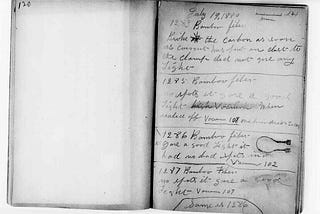 120
July 19, 1880
1283 Bamboo fiber
Broke the Carbon as soon
as current was put on due to
the Clamp did not give any
light
1285 Bamboo fiber
no spots it gave a good
light when
sealed off Vacuum 109
1286 Bamboo fiber
Gave a good light it
had no bad spots in
Vacuum 102
1287 Bamboo Fiber
no spots it gave a good
light Vacuum 109
Same as 1286